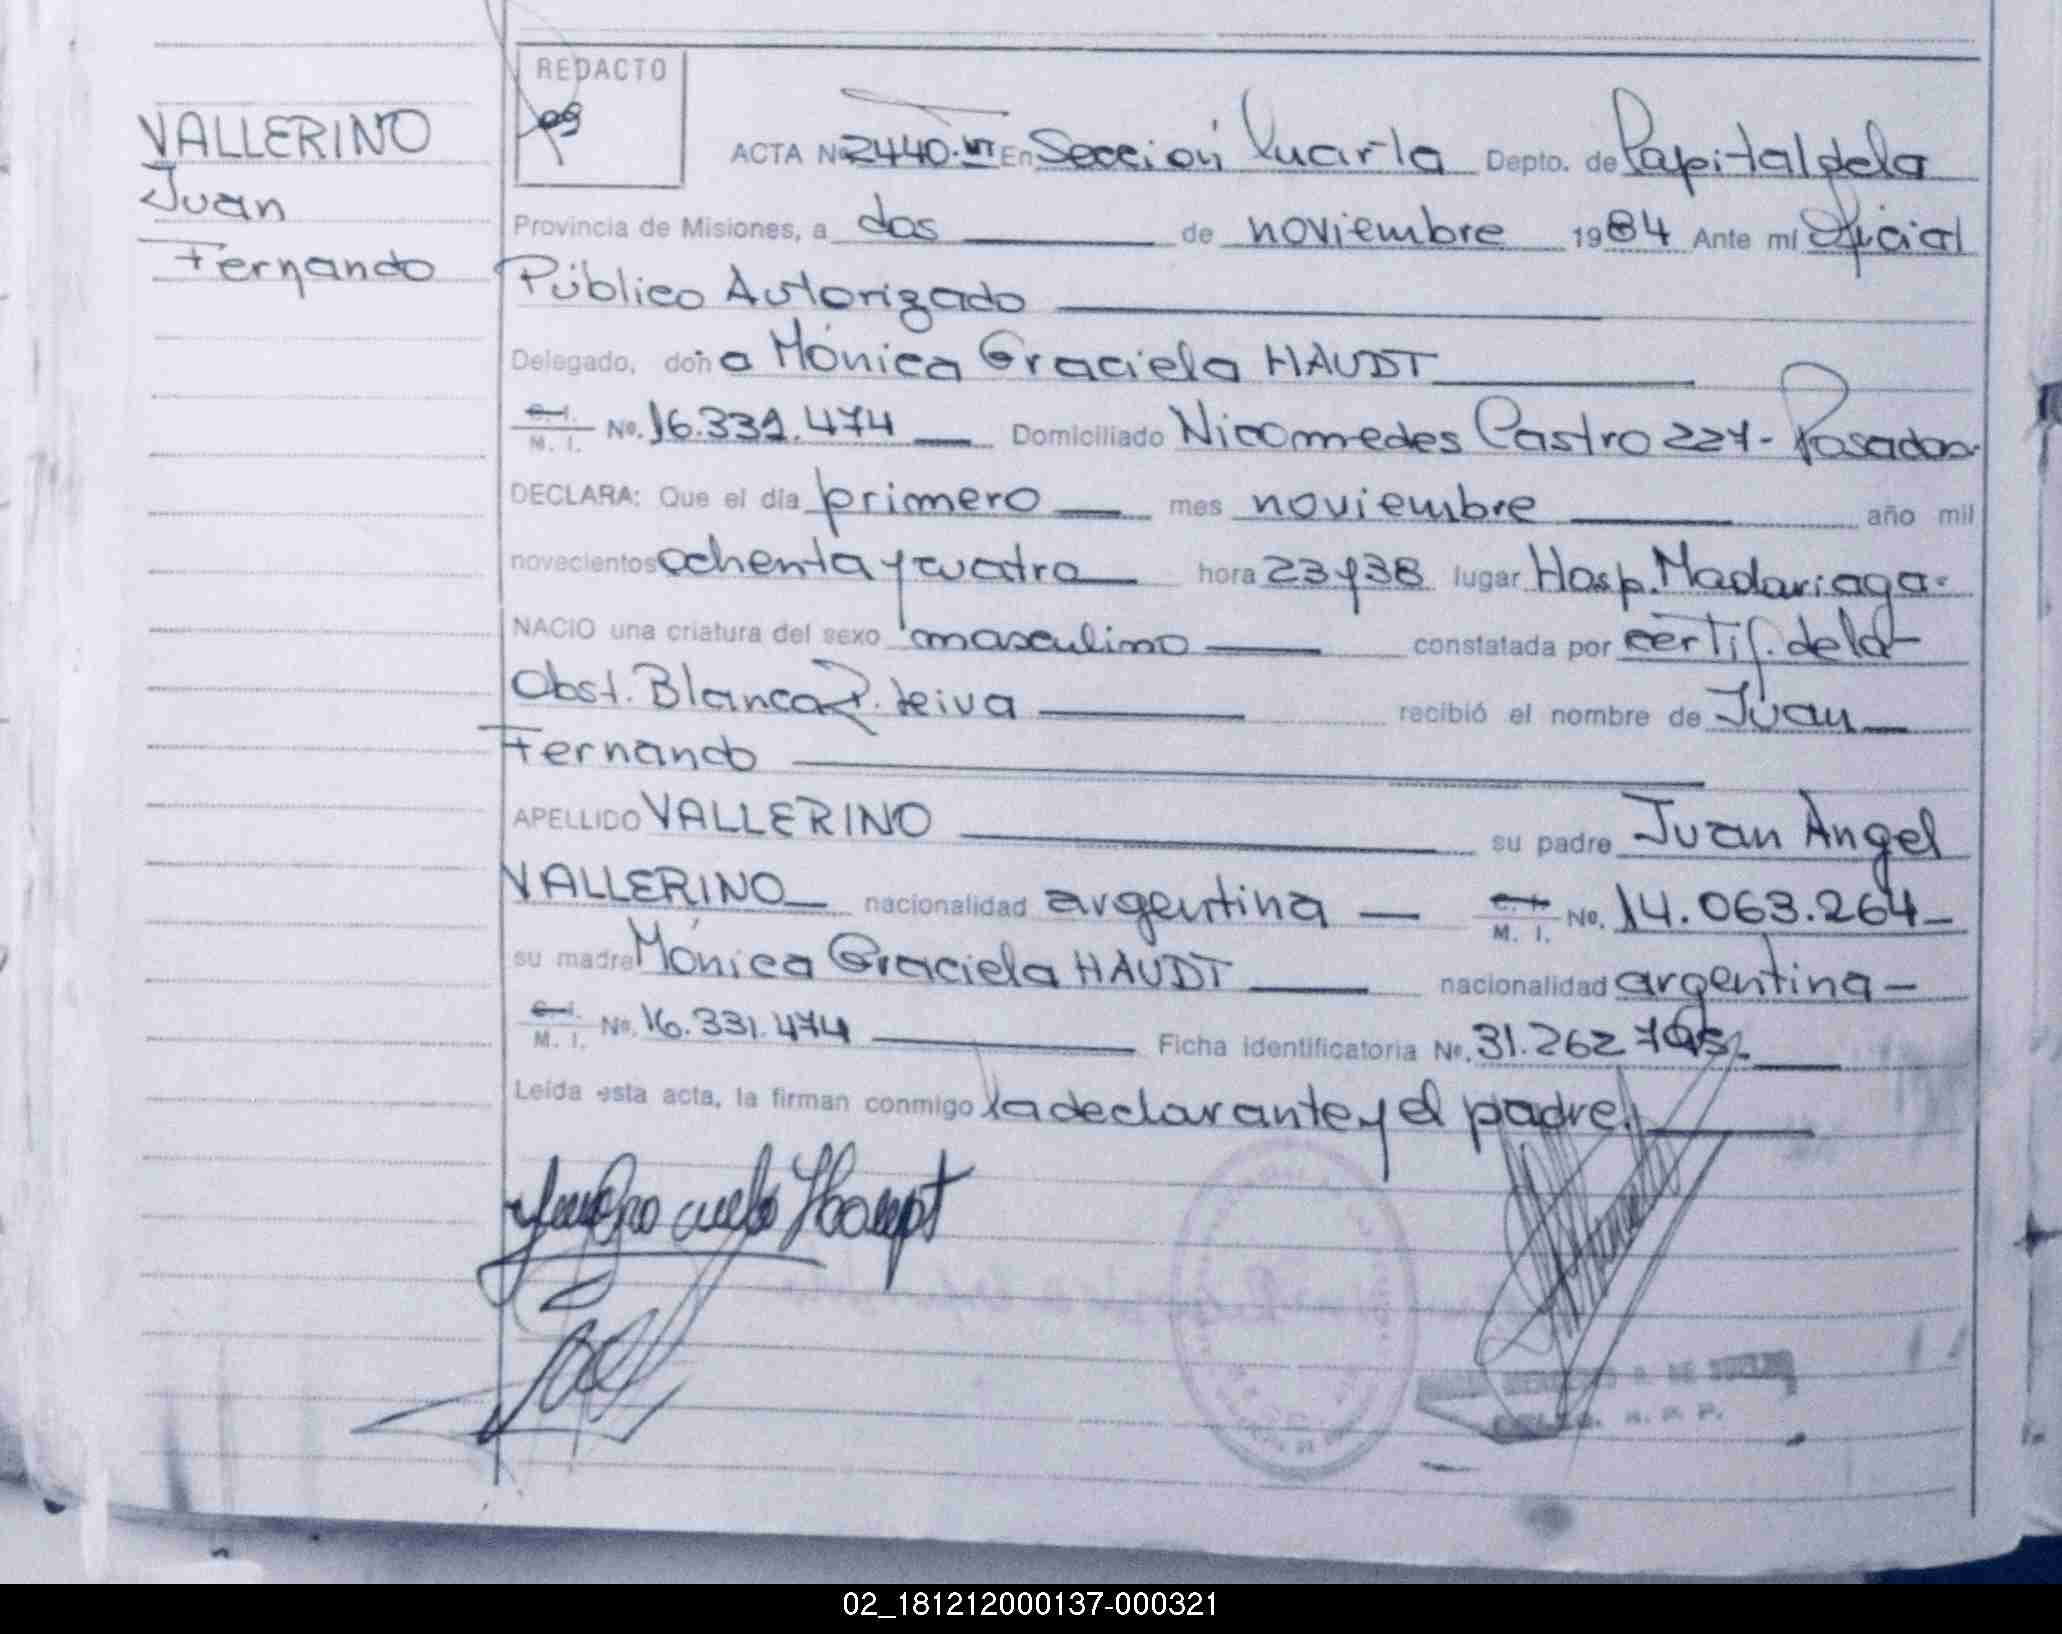 VALLERINO
Juan
Fernando
REDACTO
ACTA Nº 2440 En Sección Cuarta Depto. de Capital de la
Provincia de Misiones, a dos de noviembre 1984 Ante mí Oficial
Público Autorizado
Delegado, doña Mónica Graciela HAUDT
C. I. M. I. Nº. 16.331.474 Domiciliado Nicomedes Castro 227- Posadas-
DECLARA: Que el día primero mes noviembre año mil
novecientos ochenta y cuatro hora 23 y 38 lugar Hosp. Madariaga-
NACIO una criatura del sexo masculino constatada por certif. de la
Obst. Blanca R. Leiva recibió el nombre de Juan
Fernando
APELLIDO VALLERINO su padre Juan Angel
VALLERINO nacionalidad argentina C. I. M. I. Nº. 14.063.264
su madre Mónica Graciela HAUDT nacionalidad argentina
C. I. M. I. Nº. 16.331.474 Ficha identificatoria Nº. 31.262.795.
Leída esta acta, la firman conmigo la declarante y el padre.
02_181212000137-000321